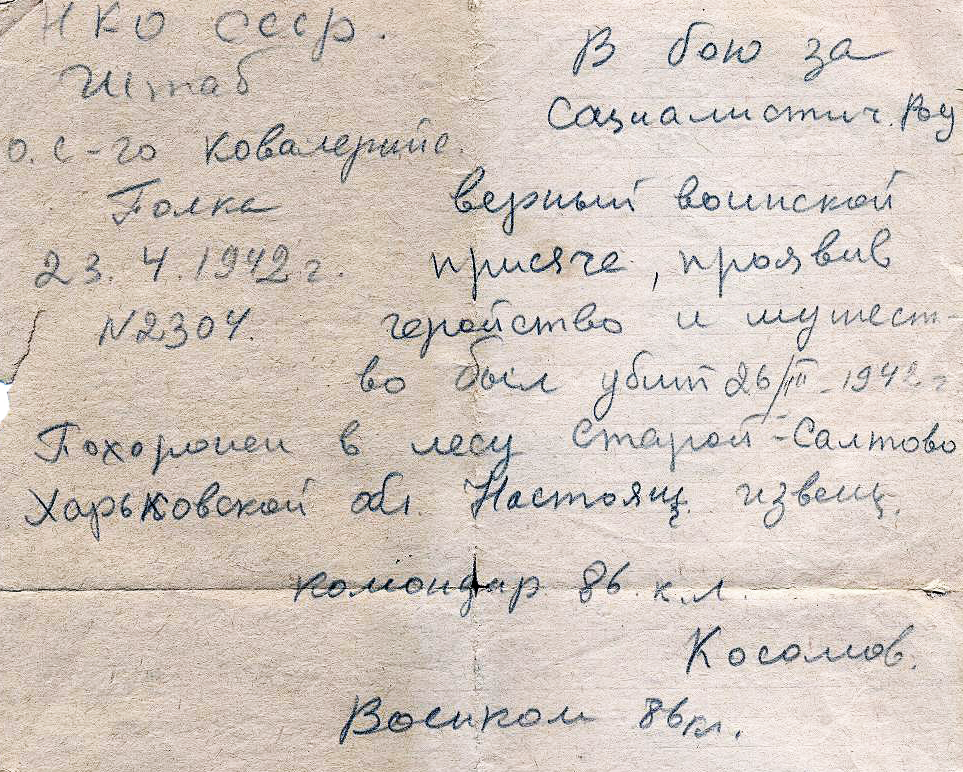 НКО СССР.
Штаб
о. с-го ковалерийс.
Полка
23. 4. 1942 г.
N2304.
В бою за
социалистич. Ро
верный воинской
присяге, проявив
геройство и мужест-
во был убит 26/III-1942 г
Похоронен в лесу Старой-Салтово
Харьковской обл. Настоящ. извещ.
командир 86 к.п.
Косомов.
Военком 86 кп.